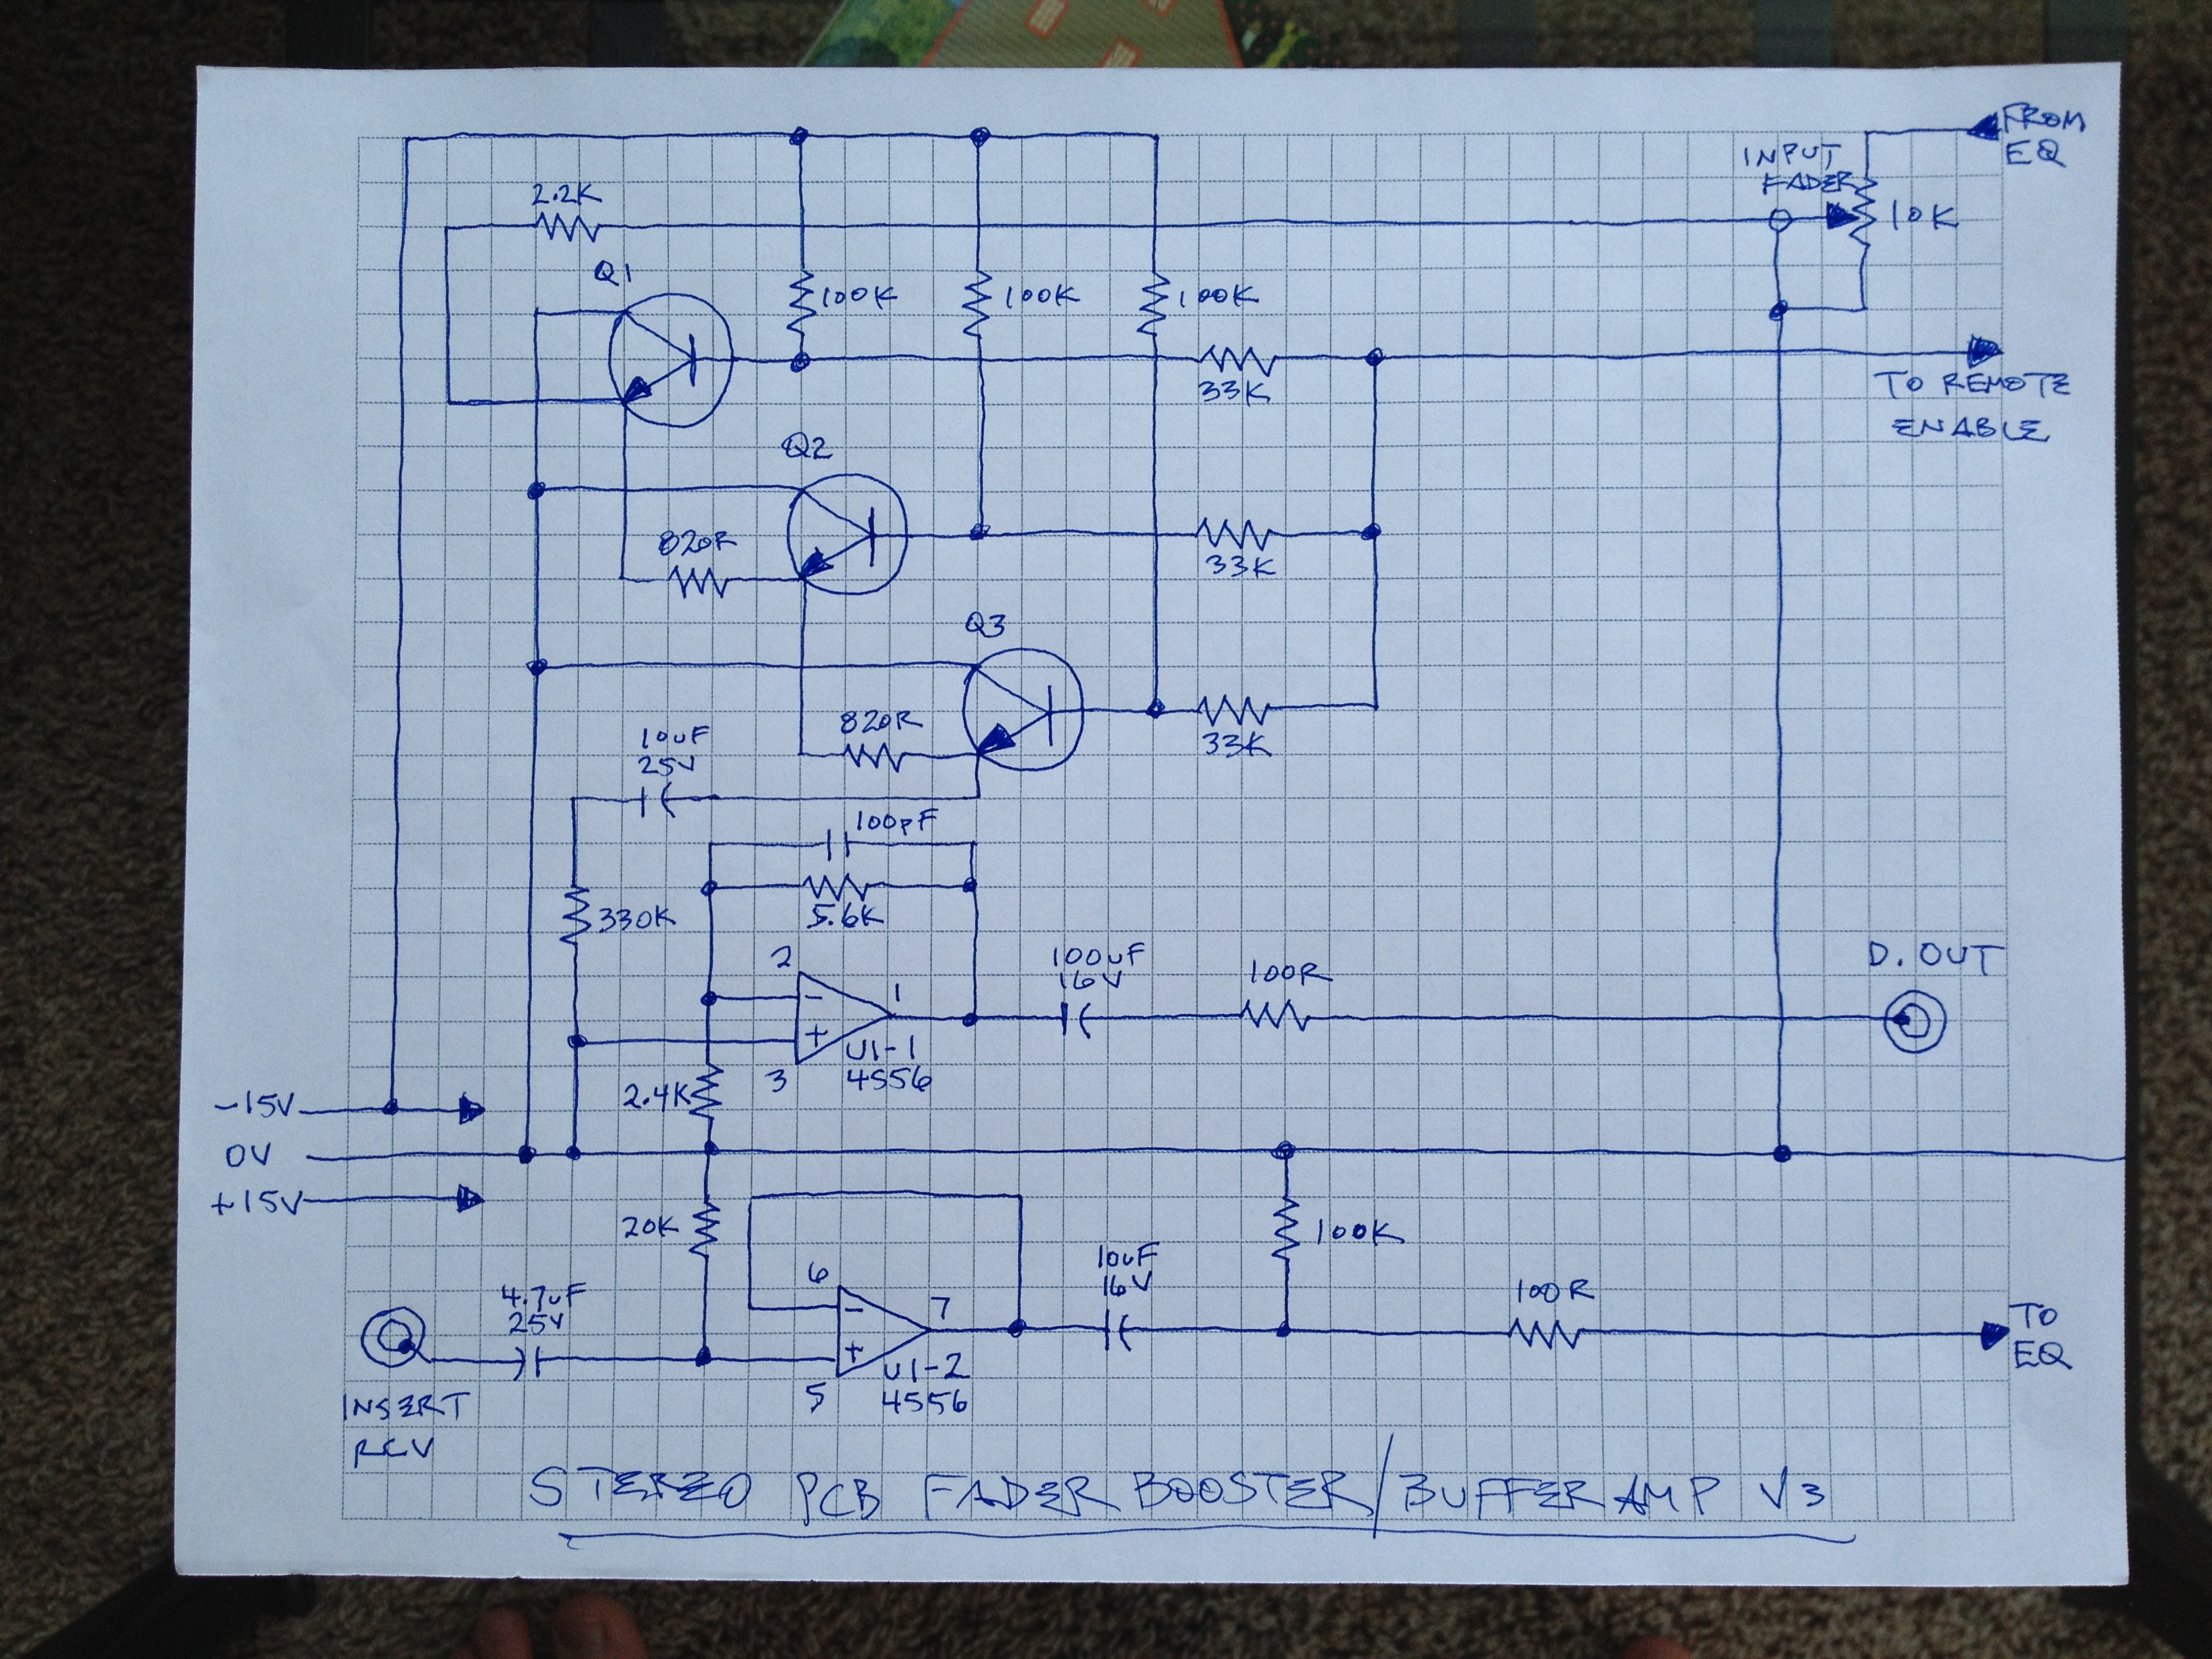 FROM
EQ
INPUT
FADER
10K
2.2K
Q1
100K
100K
100K
33K
TO REMOTE
ENABLE
Q2
820R
33K
Q3
820R
33K
10uF
25V
100pF
330K
5.6K
2
1
100uF
16V
100R
D. OUT
-
+
U1-1
4556
3
2.4K
-15V
0V
+15V
20K
100K
6
7
10uF
16V
100R
TO
EQ
4.7uF
25V
-
+
U1-2
4556
5
INSERT
RCV
STEREO PCB FADER BOOSTER/BUFFER AMP V3